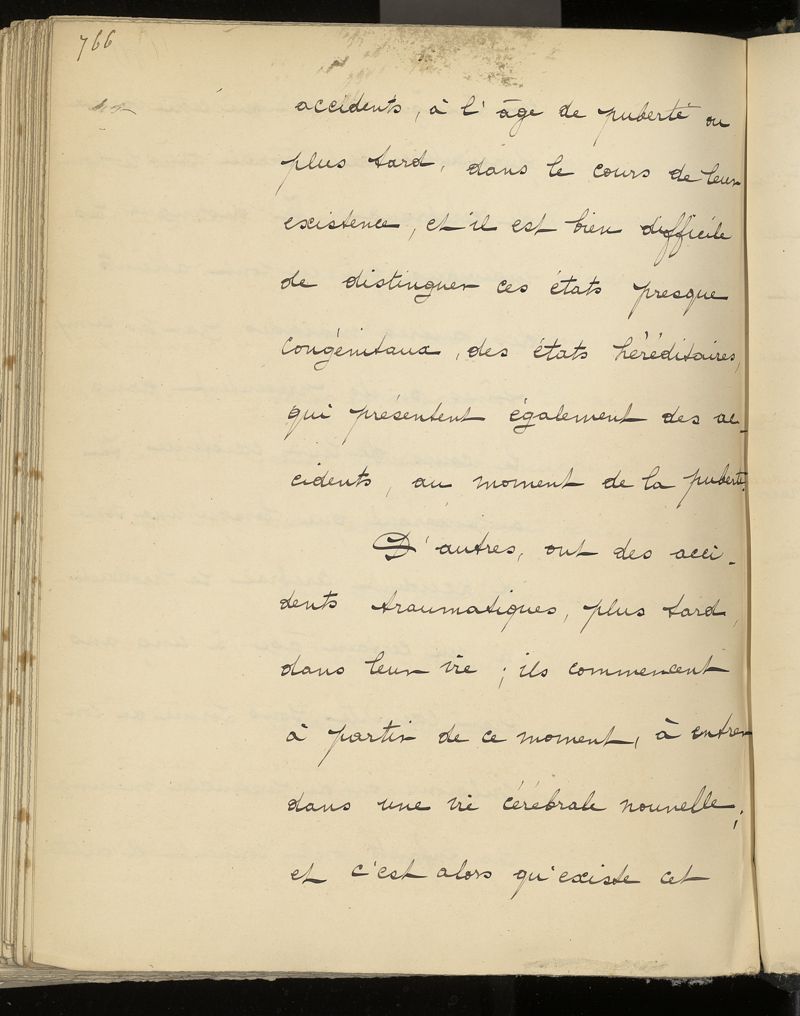 766
accidents, à l'âge de puberté ou
plus tard, dans le cours de leur
existence, et il est bien difficile
de distinguer ces états presque
congénitaux, des états héréditaires,
qui présentent également des ac-
cidents, au moment de la puberté.
D'autres, ont des acci-
dents traumatiques, plus tard,
dans leur vie ; ils commencent
à partir de ce moment, à entrer
dans une vie cérébrale nouvelle ;
et c'est alors qu'existe cet